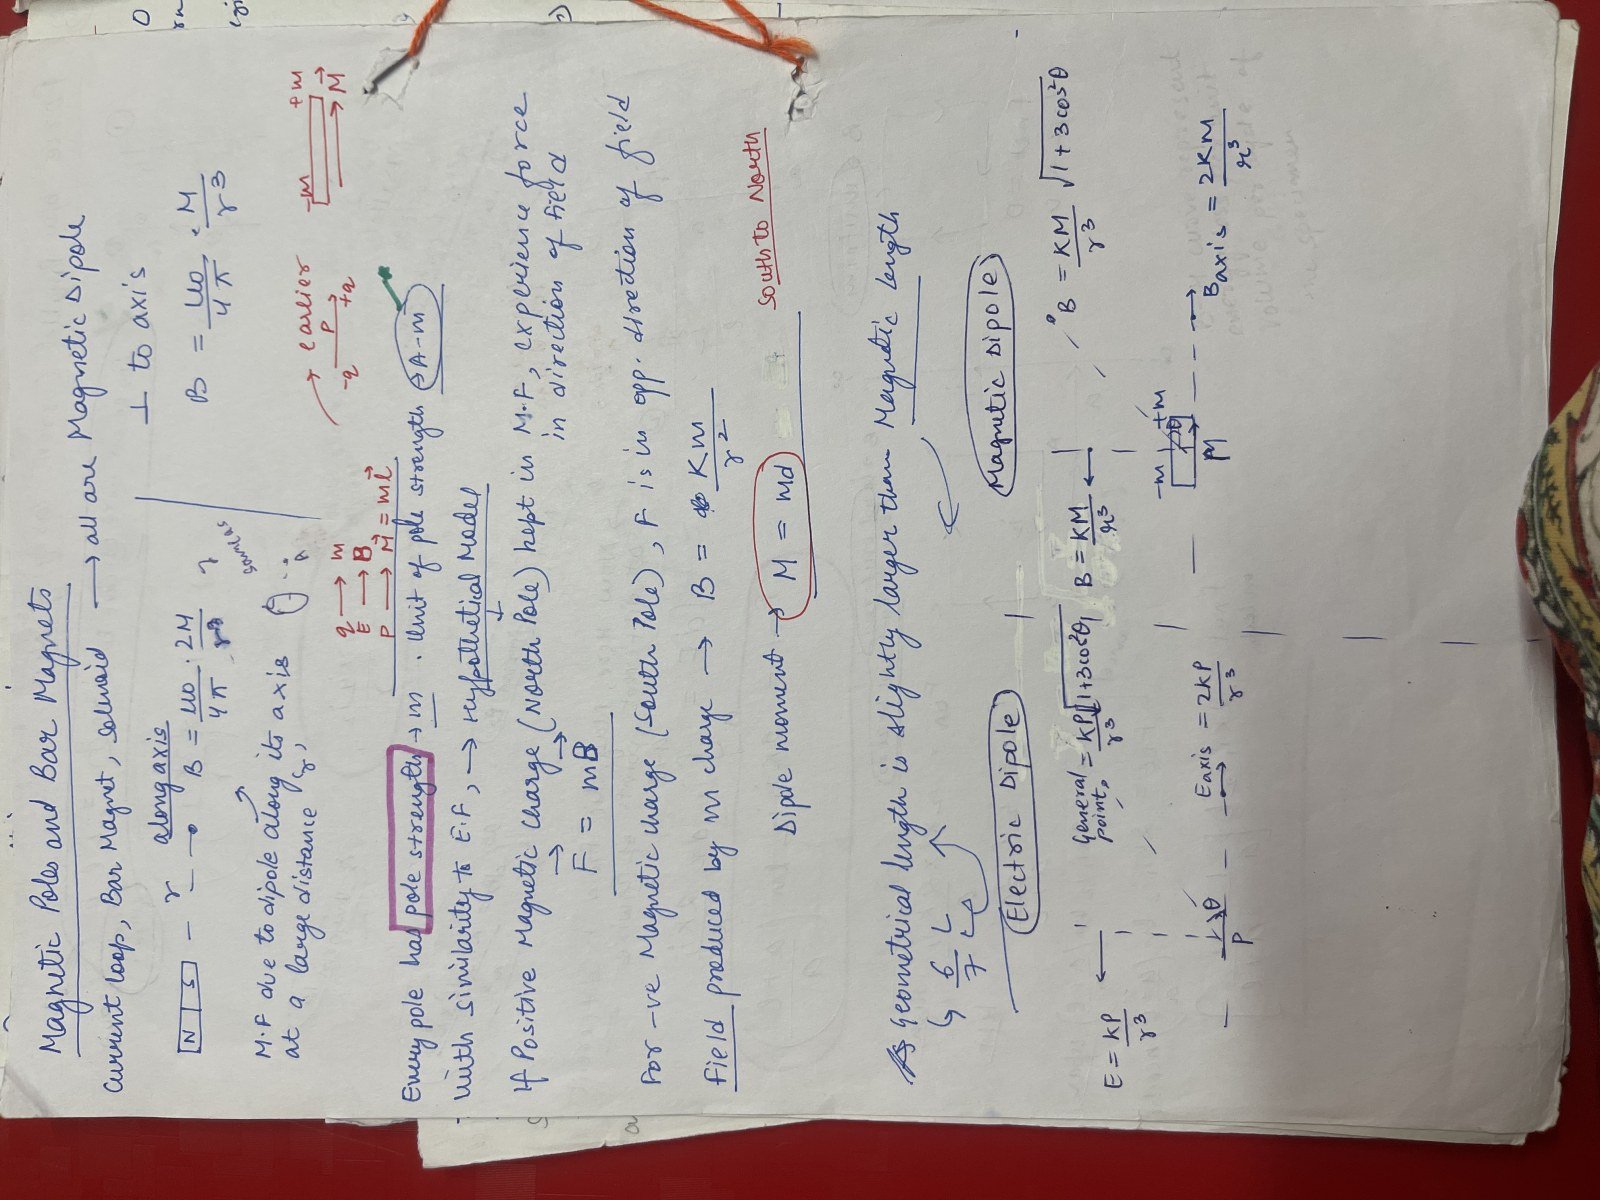 Magnetic Poles and Bar Magnets
Current loop, Bar Magnet, solenoid → all are Magnetic Dipole
N S r along axis
B = μ0/4π · 2M/r3
⊥ to axis
B = μ0/4π · M/r3
M.F due to dipole along its axis
at a large distance r,
q → m
E → B
P → M = ml
earlier
-q P +q
-m +m
M
Every pole has pole strength → m . Unit of pole strength → A-m
With similarity to E.F, → Hypothetical Model
If Positive Magnetic charge (North Pole) kept in M.F, experience force
in direction of field
F = mB
For -ve Magnetic charge (South Pole), F is in opp. direction of field
Field produced by m charge → B = Km/r2
Dipole moment → M = md
South to North
Geometrical length is slightly larger than Magnetic Length
6/7 L
Electric Dipole
Magnetic Dipole
E = KP/r3
General point,
= KP/r3 √1+3cos2θ
B = KM/r3
B = KM/r3 √1+3cos2θ
θ
P
Eaxis = 2KP/r3
-m +m
θ
M
Baxis = 2KM/r3